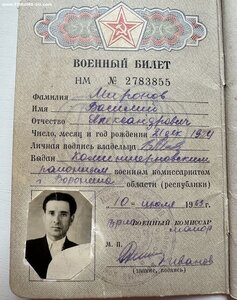 ВОЕННЫЙ БИЛЕТ
НМ № 2783855
Фамилия Миронов
Имя Василий
Отчество Александрович
Число, месяц и год рождения 21 дек. 1924
Личная подпись владельца
Выдан Коминтерновским
районным военным комиссариатом
г. Воронежа области (республики)
10 июля 1953 г.
Военный комиссар
майор
М. П.
Иванов
(звание, подпись)